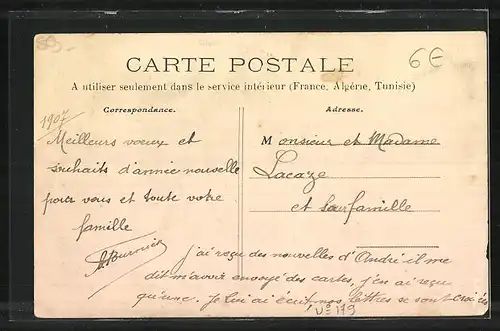 6€
CARTE POSTALE
A utiliser seulement dans le service intérieur (France, Algérie, Tunisie)
Correspondance.
1907
Meilleurs voeux et
souhaits d'année nouvelle
pour vous et toute votre
famille
Adresse.
Monsieur et Madame
Lacaze
et leur famille
j'ai reçu des nouvelles d'André il me
dit m'avoir envoyé des cartes, j'en ai reçu
qu'une. Je lui ai écrit, nos lettres se sont croisées